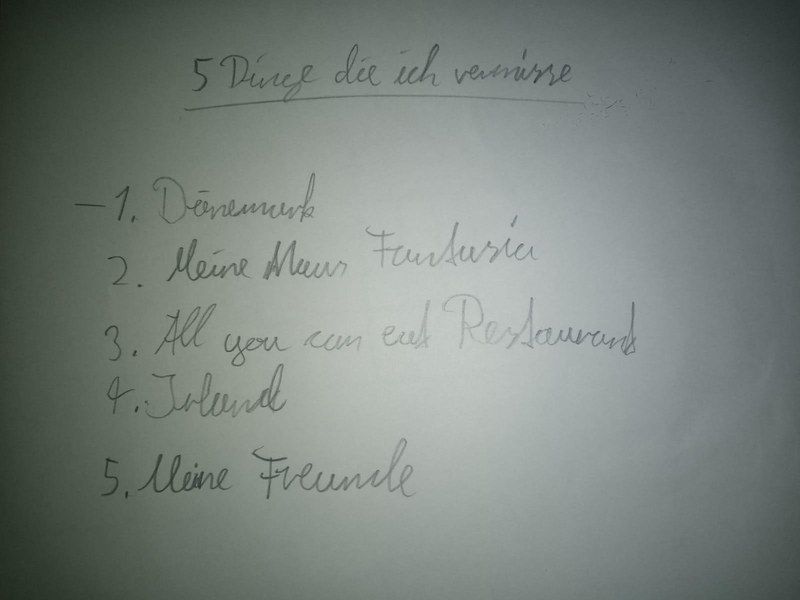 5 Dinge die ich vermisse
– 1. Dänemark
2. Meine Maus Fantasia
3. All you can eat Restaurant
4. Irland
5. Meine Freunde